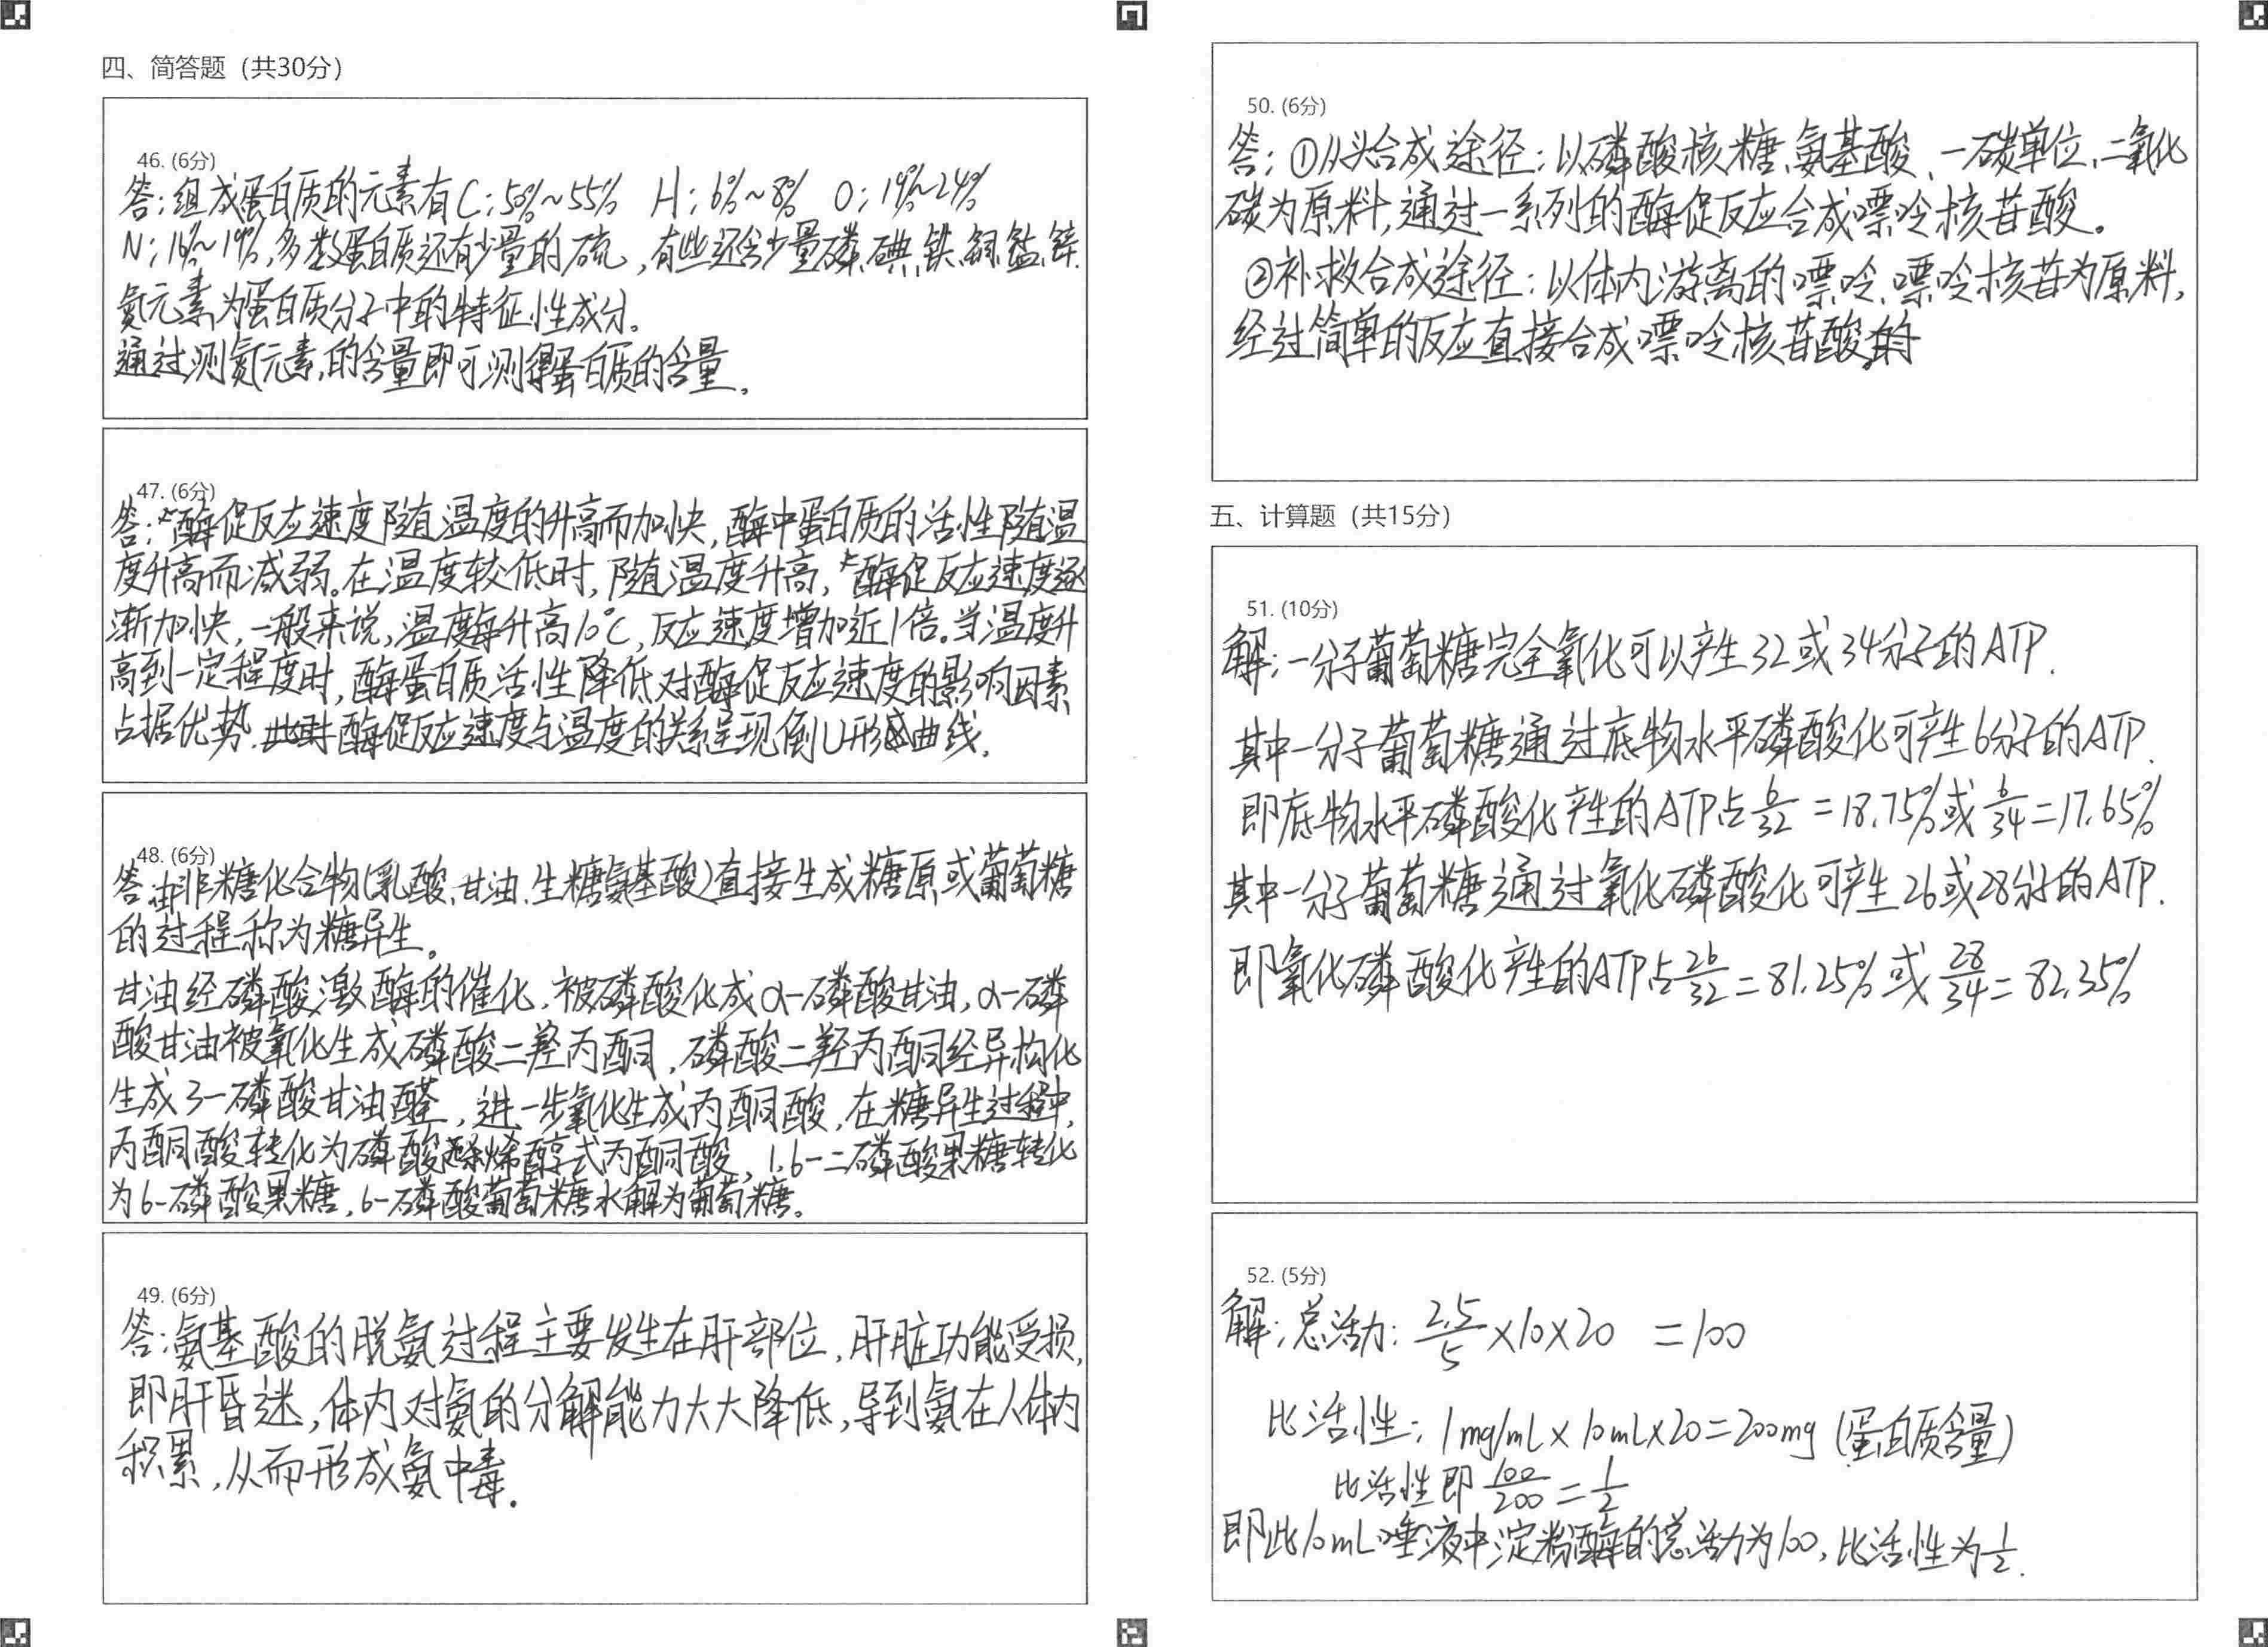 四、简答题（共30分）
46. (6分)
答：组成蛋白质的元素有C：50%～55%　H：6%～8%　O：19%～24%
N：16%～19%，多数蛋白质还有少量的硫，有些还含少量磷、碘、铁、铜、锰、锌.
氮元素为蛋白质分子中的特征性成分。
通过测氮元素的含量即可测得蛋白质的含量。
47. (6分)
答：酶促反应速度随温度的升高而加快，酶中蛋白质的活性随温
度升高而减弱。在温度较低时，随温度升高，酶促反应速度逐
渐加快，一般来说，温度每升高10℃，反应速度增加近1倍。当温度升
高到一定程度时，酶蛋白质活性降低对酶促反应速度的影响因素
占据优势.此时酶促反应速度与温度的关系呈现倒U形曲线.
48. (6分)
答：由非糖化合物(乳酸、甘油、生糖氨基酸)直接生成糖原或葡萄糖
的过程称为糖异生。
甘油经磷酸激酶的催化，被磷酸化成α-磷酸甘油，α-磷
酸甘油被氧化生成磷酸二羟丙酮，磷酸二羟丙酮经异构化
生成3-磷酸甘油醛，进一步氧化生成丙酮酸，在糖异生过程中，
丙酮酸转化为磷酸烯醇式丙酮酸，1.6-二磷酸果糖转化
为6-磷酸果糖，6-磷酸葡萄糖水解为葡萄糖。
49. (6分)
答：氨基酸的脱氨过程主要发生在肝部位，肝脏功能受损，
即肝昏迷，体内对氨的分解能力大大降低，导到氨在人体内
积累，从而形成氨中毒.
50. (6分)
答：①从头合成途径：以磷酸核糖、氨基酸、一碳单位、二氧化
碳为原料，通过一系列的酶促反应合成嘌呤核苷酸。
②补救合成途径：以体内游离的嘌呤、嘌呤核苷为原料，
经过简单的反应直接合成嘌呤核苷酸。
五、计算题（共15分）
51. (10分)
解：一分子葡萄糖完全氧化可以产生32或34分子的ATP.
其中一分子葡萄糖通过底物水平磷酸化可产生6分子的ATP.
即底物水平磷酸化产生的ATP占6/32=18.75%或6/34=17.65%
其中一分子葡萄糖通过氧化磷酸化可产生26或28分子的ATP.
即氧化磷酸化产生的ATP占26/32=81.25%或28/34=82.35%
52. (5分)
解：总活力：2.5/5×10×20 =100
比活性：1mg/mL×10mL×20=200mg (蛋白质含量)
比活性即100/200=1/2
即此10mL唾液中淀粉酶的总活力为100，比活性为1/2.